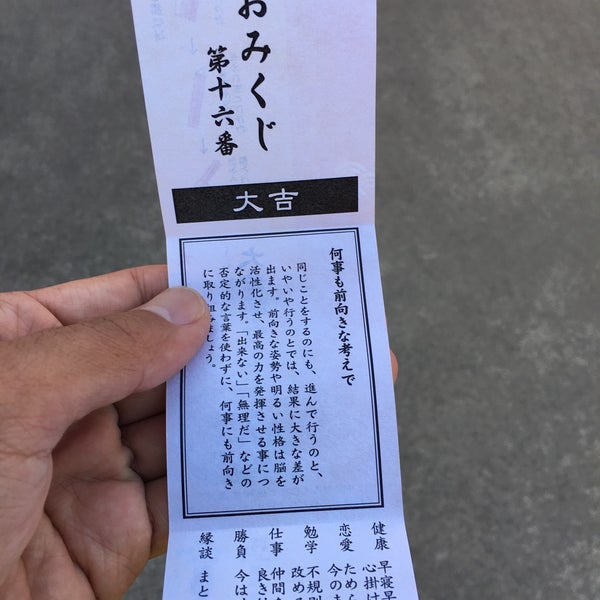 おみくじ
第十六番
大吉
何事も前向きな考えで
同じことをするのにも、進んで行うのと、
いやいや行うのとでは、結果に大きな差が
出ます。前向きな姿勢や明るい性格は脳を
活性化させ、最高の力を発揮させる事につ
ながります。「出来ない」「無理だ」などの
否定的な言葉を使わずに、何事にも前向き
に取り組みましょう。
健康 早寝早
心掛け
恋愛 ためら
今のま
勉学 不規則
改める
仕事 仲間
良き
勝負 今は
縁談 まと